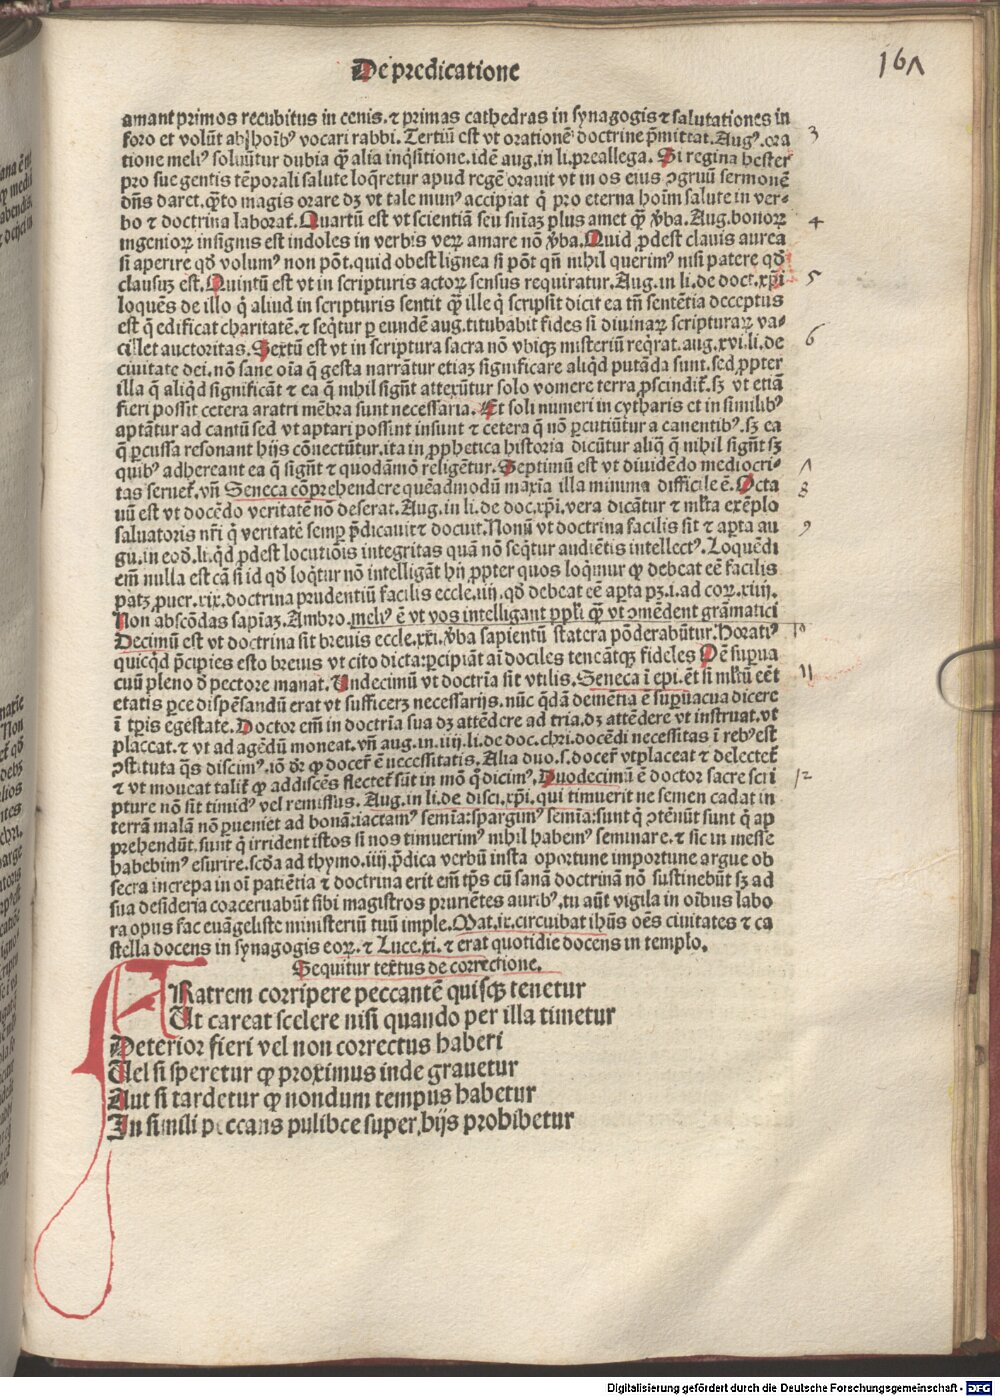 De predicatione
167
amant primos recubitus in cenis. ⁊ primas cathedras in synagogis ⁊ salutationes in
foro et volūt ab hoībꝰ vocari rabbi. Tertiū est vt orationē doctrine p̄mittat. Augꝰ. ora
tione meliꝰ soluūtur dubia q̄ȝ alia inq̇sitione. idē aug. in li. preallega. Si regina hester
pro sue gentis tēporali salute loq̄retur apud regē orauit vt in os eius ꝯgruū sermonē
dn̄s daret. q̄ȝto magis orare dȝ vt tale munꝰ accipiat q̇ pro eterna hoīm salute in ver-
bo ⁊ doctrina laborat. Quartū est vt scientiā seu sn̄iaȝ plus amet q̄ȝ v̄ba. Aug. bonoꝝ
ingenioꝝ insignis est indoles in verbis veꝝ amare nō v̄ba. Quid ꝓdest clauis aurea
si aperire qđ volumꝰ non pōt. quid obest lignea si pōt qn̄ nihil querimꝰ nisi patere qđ
clausuȝ est. Quintū est vt in scripturis actoꝝ sensus requiratur. Aug. in li. de doct. xp̄i
loquēs de illo q̇ aliud in scripturis sentit q̄ȝ ille q̇ scripsit dicit ea tn̄ sentētia deceptus
est q̄ edificat charitatē. ⁊ seq̄tur ꝑ eundē aug. titubabit fides si diuinaꝝ scripturaꝝ va-
cillet auctoritas. Sextū est vt in scriptura sacra nō vbiqȝ misteriū req̇rat. aug. xvi. li. de
ciuitate dei. nō sane oīa q̄ gesta narrātur etiaȝ significare aliq̇d putāda sunt. sed ꝓpter
illa q̄ aliq̇d significāt ⁊ ea q̄ nihil sign̄t attexūtur solo vomere terra ꝓscinditꝭ. sȝ vt etiā
fieri possit cetera aratri mēbra sunt necessaria. Et soli numeri in cytharis et in similibꝰ
aptātur ad cantū sed vt aptari possint insunt ⁊ cetera q̄ nō ꝑcutiūtur a canentibꝰ. sȝ ea
q̄ ꝑcussa resonant hijs cōnectūtur. ita in ꝓphetica historia dicūtur aliq̄ q̄ nihil sign̄t sȝ
quibꝰ adhereant ea q̄ sign̄t ⁊ quodāmō religētur. Septimū est vt diuidēdo mediocri-
tas seruetꝭ. vn̄ Seneca cōprehendere quēadmodū maxīa illa minima difficile ē. Octa
uū est vt docēdo veritatē nō deserat. Aug. in li. de doc. xp̄i. vera dicātur ⁊ mlt̄a exēplo
saluatoris nr̄i q̇ veritatē semꝑ p̄dicauit ⁊ docuit. Nonū vt doctrina facilis sit ⁊ apta au
gu. in eod. li. q̇d ꝓdest locutiōis integritas quā nō seq̄tur audiētis intellectꝰ. Loquēdi
em̄ nulla est cā si id qđ loq̄tur nō intelligāt hij ꝓpter quos loq̇mur ꝙ debeat eē facilis
patȝ ꝓuer. xix. doctrina prudentiū facilis eccle. iiij. qđ debeat eē apta pȝ. i. ad coꝝ. xiiij.
Non abscōdas sapīaȝ. Ambro. meliꝰ ē vt vos intelligant ppl̄i q̄ȝ vt ꝯmēdent grāmatici
Decimū est vt doctrina sit breuis eccle. xxi. v̄ba sapientū statera pōderabūtur. Horatiꝰ
quicq̇d p̄cipies esto breuis vt cito dicta ꝑcipiāt aī dociles teneātqȝ fideles Oē suꝑua
cuū pleno đ pectore manat. Undecimū vt doctrīa sit vtilis. Seneca ī epi. ēt si mltū eēt
etatis ꝑce dispēsandū erat vt sufficerȝ necessarijs. nūc q̄dā demētia ē suꝑuacua dicere
ī tp̄is egestate. Doctor em̄ in doctrīa sua dȝ attēdere ad tria. dȝ attēdere vt instruat. vt
placeat. ⁊ vt ad agēdū moneat. vn̄ aug. in. iiij. li. de doc. chri. docēdi necessitas ī rebꝰ est
ꝯstituta q̄s discimꝰ. iō dr̄ ꝙ docerꝭ ē necessitatis. Alia duo. s. docerꝭ vt placeat ⁊ delectetꝭ
⁊ vt moueat talitꝭ ꝙ addiscēs flectetꝭ sūt in mō q̇ dicimꝰ. Duodecimū ē doctor sacre scri
pture nō sit timidꝰ vel remissus. Aug. in li. de disci. xp̄i. qui timuerit ne semen cadat in
terrā malā nō ꝑueniet ad bonā: iactamꝰ semīa: spargimꝰ semīa: sunt q̇ ꝯtēnūt sunt q̇ ap
prehendūt. sunt q̇ irrident istos si nos timuerimꝰ nihil habemꝰ seminare. ⁊ sic in messe
habebimꝰ esurire. scđa ad thymo. iiij. p̄dica verbū insta oportune importune argue ob
secra increpa in oī patiētia ⁊ doctrina erit em̄ tp̄s cū sanā doctrinā nō sustinebūt sȝ ad
sua desideria coaceruabūt sibi magistros pruriētes auribꝰ. tu aūt vigila in oībus labo
ra opus fac euāgeliste ministeriū tuū imple. Mat. ix. circuibat ih̄us oēs ciuitates ⁊ ca
stella docens in synagogis eoꝝ. ⁊ Luce. xi. ⁊ erat quotidie docens in templo.
Sequitur textus de correctione.
FRatrem corripere peccantē quisqȝ tenetur
Ut careat scelere nisi quando per illa timetur
Deterior fieri vel non correctus haberi
Uel si speretur ꝙ proximus inde grauetur
Aut si tardetur ꝙ nondum tempus habetur
In simili peccans pulibce super hijs prohibetur
3
4
5
6
7
8
9
10
11
12
Digitalisierung gefördert durch die Deutsche Forschungsgemeinschaft - DFG